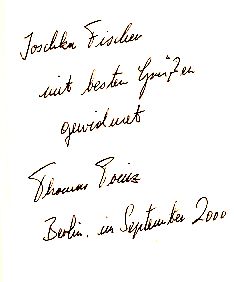 Joschka Fischer
mit besten Grüßen
gewidmet
Thomas
Berlin, im September 2000